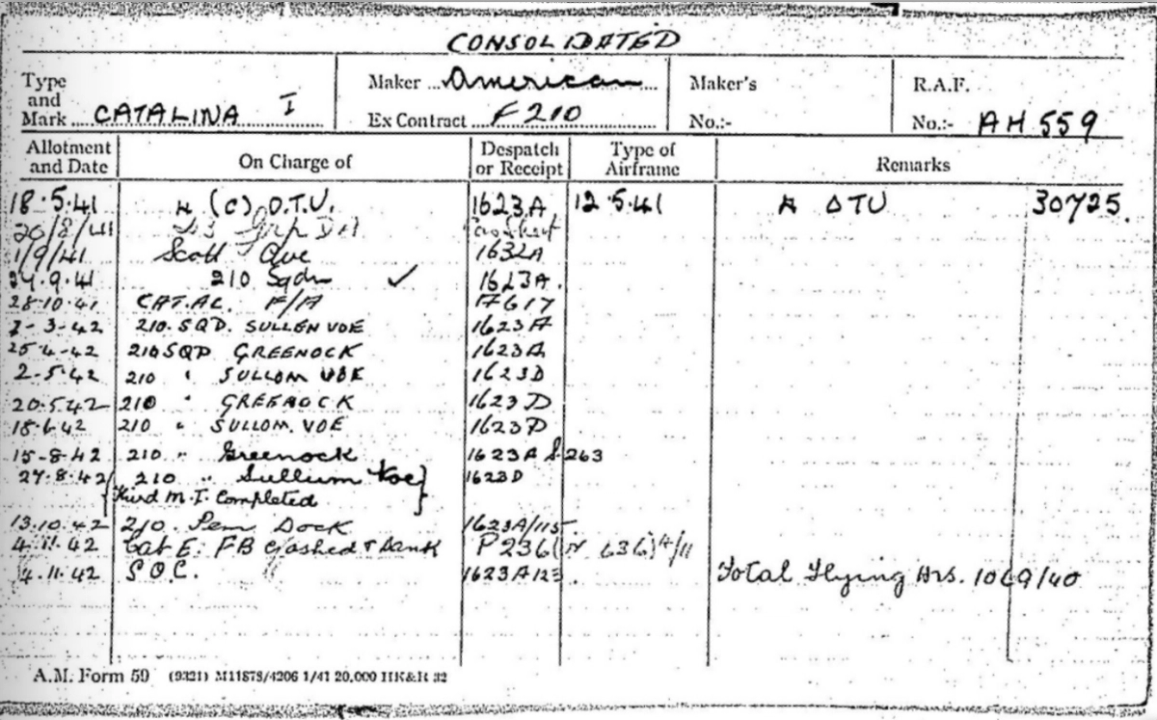 CONSOLIDATED
Type and Mark CATALINA I Maker American Ex Contract F210 Maker's No.:- R.A.F. No.:- AH 559
Allotment and Date On Charge of Despatch or Receipt Type of Airframe Remarks
18.5.41 4 (C) O.T.U. 1623A 12.5.41 4 OTU 30725.
20/8/41
1/9/41 Scott 1632A
24.9.41 210 Sqdn ✓ 1623A.
28.10.41 CAT.AC. F/A 17617
2-3-42 210. SQD. SULLEN VOE 1623A
25-4-42 210 SQD GREENOCK 1623A
2-5-42 210 " SULLOM VOE 1623D
20.5.42 210 " GREENOCK 1623D
18.6.42 210 " SULLOM. VOE 1623D
15-8-42 210 " Greenock 1623A S263
27.8.42 210 " Sullum Voe 1623D
Third M.I. Completed
13.10.42 210. Pem Dock 1623A/115
4.11.42 Cat E. FB crashed & sank P236 4/11
4.11.42 S.O.C. 1623A123 Total Flying Hrs. 1069/40
A.M. Form 59 (9321) M11878/4206 1/41 20,000 HK&R 32